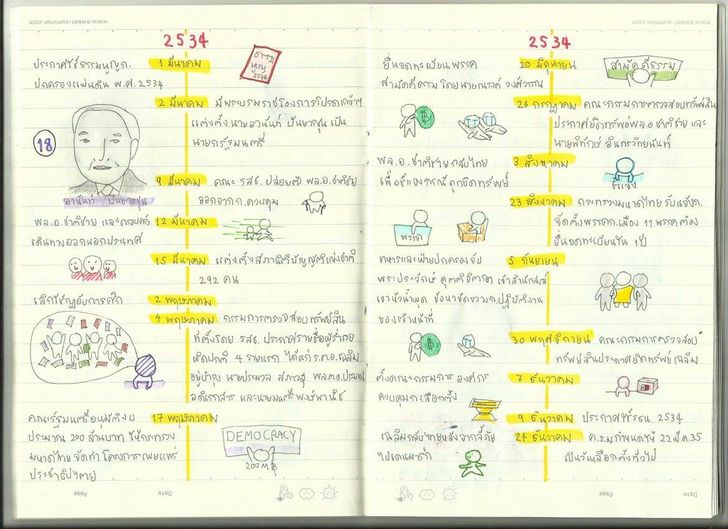 2534
ประกาศใช้ธรรมนูญก.
1 มีนาคม
ปกครองแผ่นดิน พ.ศ. 2534
2 มีนาคม
มีพระบรมราชโองการโปรดเกล้าฯ
แต่งตั้งนายอานันท์ ปันยารชุน เป็น
นายกรัฐมนตรี
18
อานันท์ ปันยารชุน
9 มีนาคม
คณะ รสช. ปล่อยตัว พล.อ.ชาติชาย
ออกจากก.ควบคุม
พล.อ.ชาติชาย และครอบครัว
12 มีนาคม
เดินทางออกนอกประเทศ
15 มีนาคม
แต่งตั้งสภานิติบัญญัติแห่งชาติ
292 คน
เลิกใช้กฎอัยการศึก
2 พฤษภาคม
4 พฤษภาคม
กรรมการตรวจสอบทรัพย์สิน
ที่ตั้งโดย รสช. ประกาศรายชื่อผู้ร่ำรวย
ผิดปกติ 4 รายแรก ได้แก่ ร.ต.อ.เฉลิม
อยู่บำรุง นายประมวล สภาวสุ พล.ต.อ.ประมาณ
อดิเรกสาร และนายมนตรี พงษ์พานิช
คณะรัฐมนตรีอนุมัติงบ
17 พฤษภาคม
ประมาณ 200 ล้านบาท ให้กระทรวง
มหาดไทย จัดทำโครงการเผยแพร่
ประชาธิปไตย
DEMOCRACY
200 M฿
Date
Page
2534
ยื่นจดทะเบียนพรรค
20 มิถุนายน
สามัคคีธรรม
สามัคคีธรรม โดยนายณรงค์ วงศ์วรรณ
26 กรกฎาคม
คณะกรรมการตรวจสอบทรัพย์สิน
ประกาศยึดทรัพย์ พล.อ.ชาติชาย และ
นายพิทักษ์ อินทรวิทยนันท์
พล.อ.ชาติชาย กลับไทย
3 สิงหาคม
เพื่อชี้แจงกรณีถูกยึดทรัพย์
ชี้แจง
23 สิงหาคม
กระทรวงมหาดไทย
จัดตั้งพรรคก.เมือง 11 พรรคต้อง
ยื่นจดทะเบียนใน 1 ปี
พรรค
ทหารและฝ่ายปกครองจับ
5 กันยายน
พระประจักษ์ คุตตจิตโต เข้าสำนักสงฆ์
เขาน้ำผุด ข้อหาขัดขวางก.ปฏิบัติงาน
ของเจ้าหน้าที่
30 พฤศจิกายน
คณะกรรมการตรวจสอบ
ทรัพย์สินประกาศยึดทรัพย์เฉลิม
ตั้งคณะกรรมการ องค์กร
7 ธันวาคม
ควบคุมก.เลือกตั้ง
9 ธันวาคม
ประกาศใช้รธน. 2534
เฉลิมกลับไทยหลังจากลี้ภัย
24 ธันวาคม
ค.ร.ม.กำหนดวันที่ 22 มี.ค.35
ไปเดนมาร์ก
เป็นวันเลือกตั้งทั่วไป
Page
Date